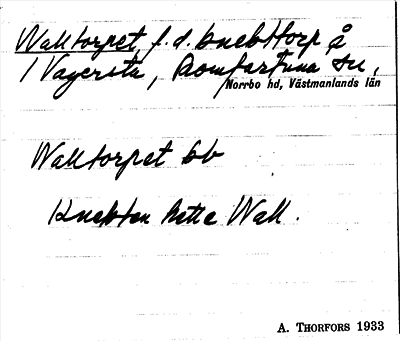 Walltorpet, f.d. knekttorp å
1 Vagersta, Romfartuna sn,
Norrbo hd, Västmanlands län
Walltorpet bb
Knekten hette Wall.
A. THORFORS 1933